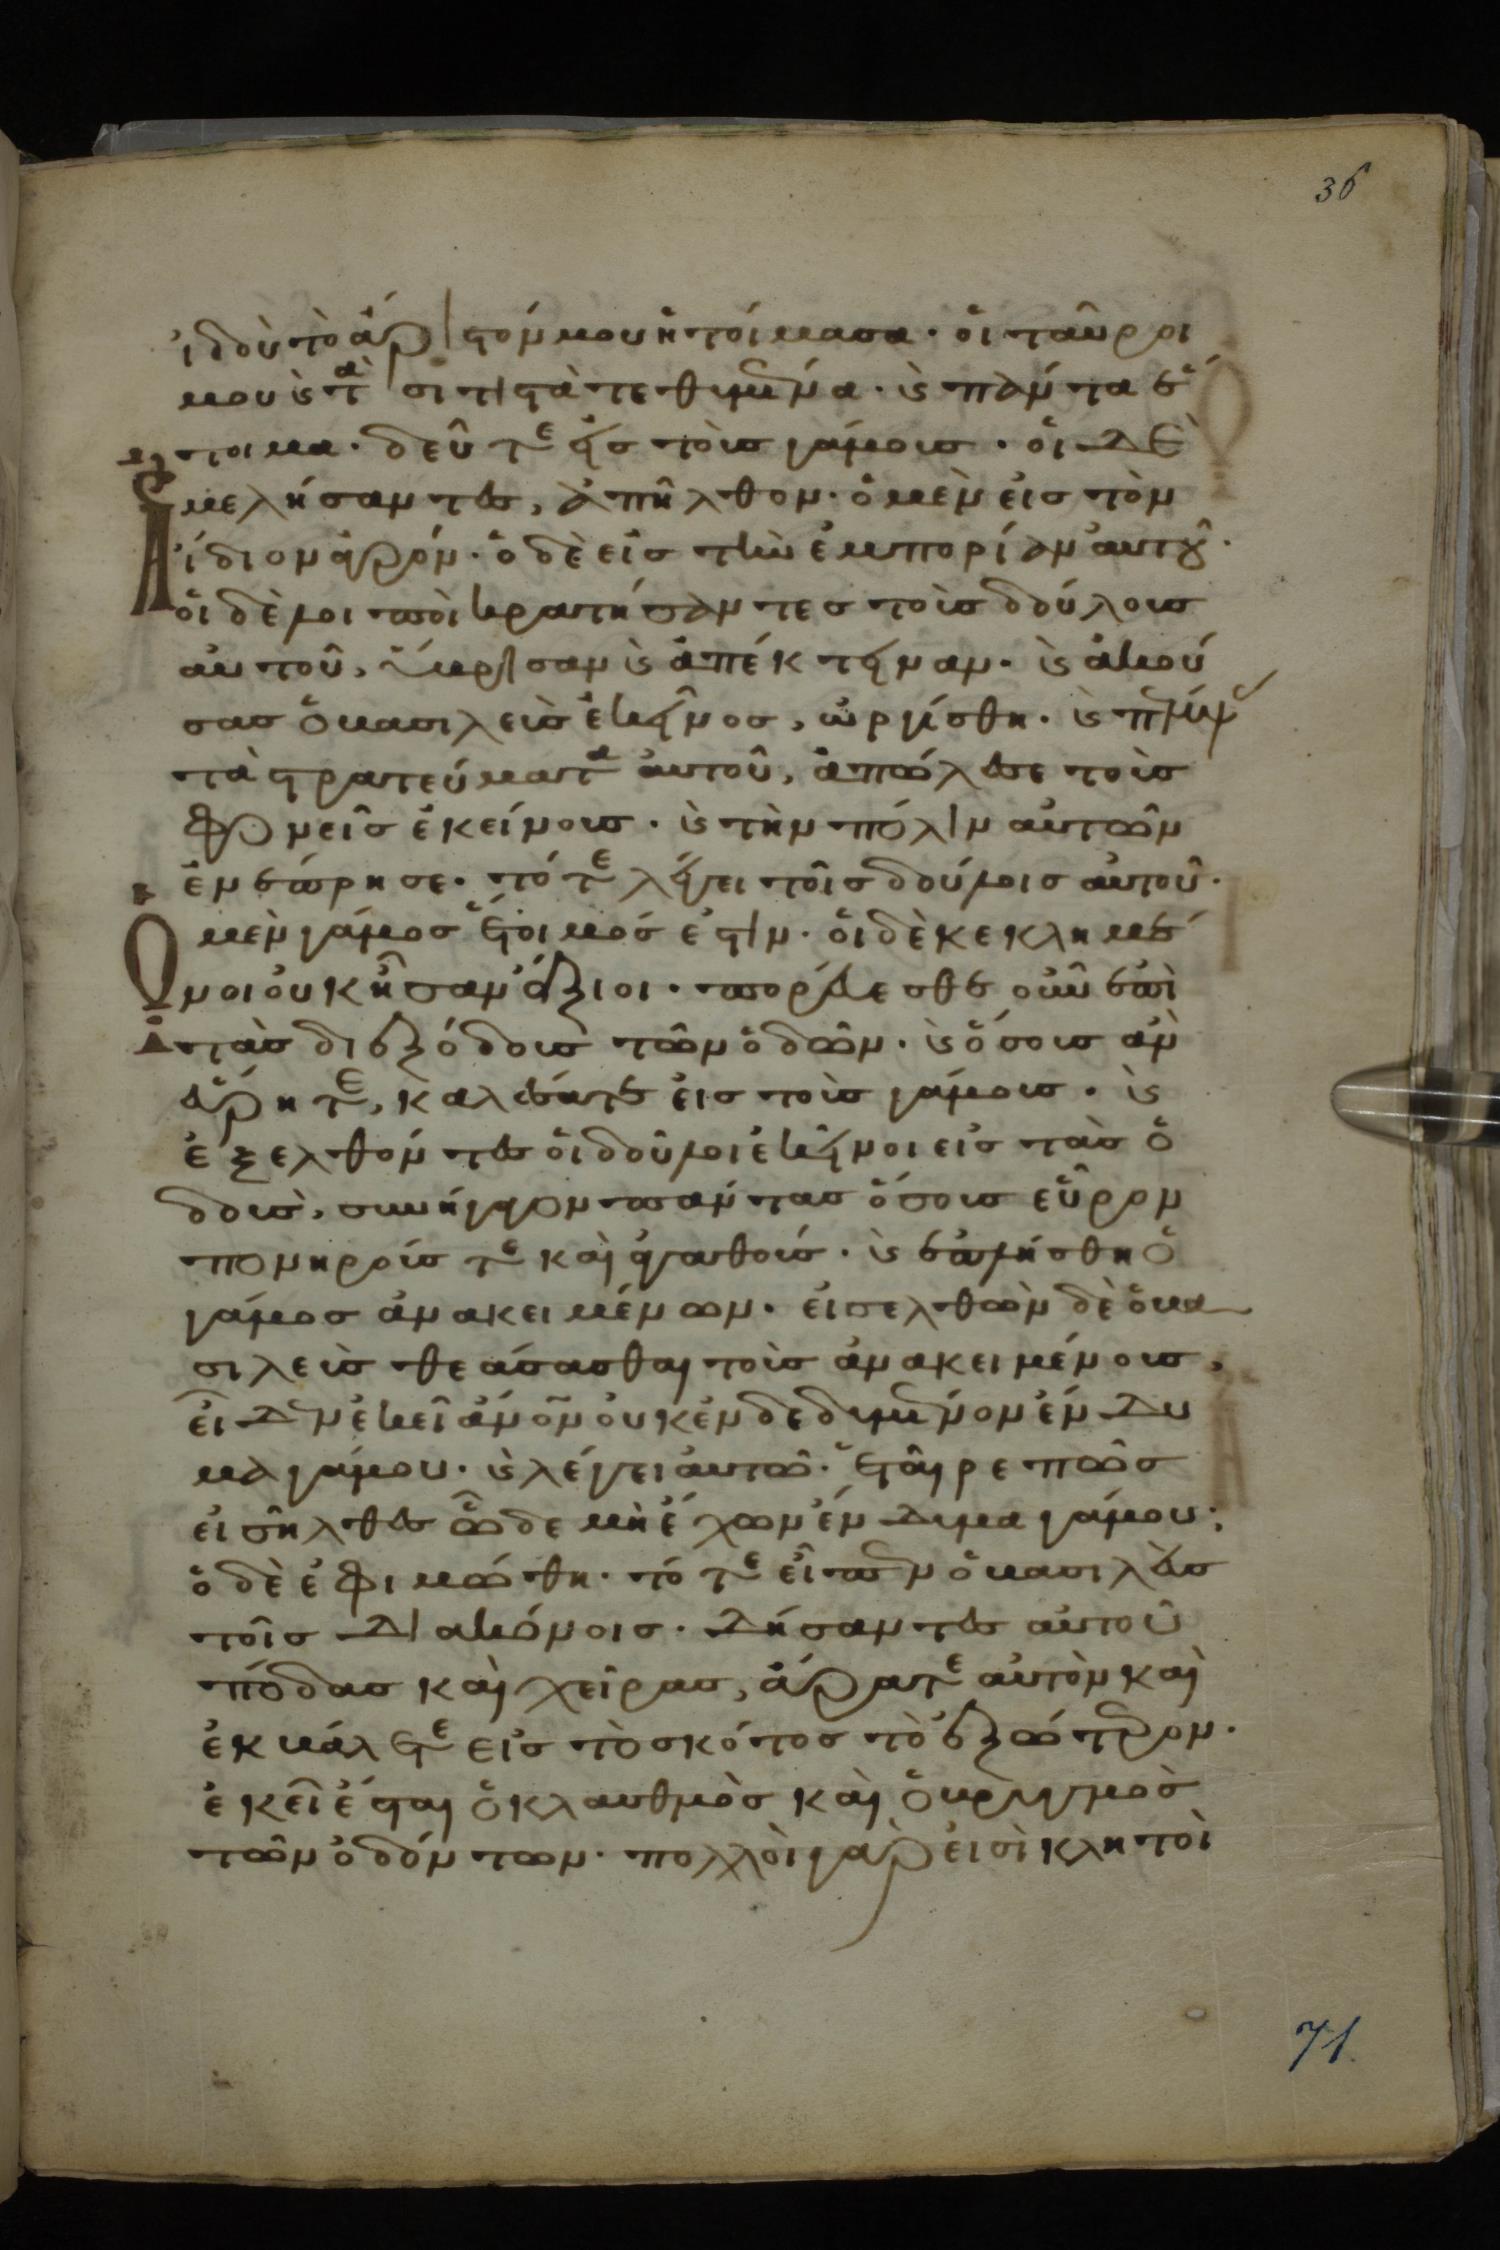 36
ἰδοὺ τὸ ἄριστόν μου ἡτοίμασα· οἱ ταῦροι
μου ϗ τὰ σιτιστὰ τεθυμένα· ϗ πάντα ἕ
τοιμα· δεῦτε εἰς τοὺς γάμους· οἱ δὲ
ἀμελήσαντες, ἀπῆλθον· ὁ μὲν εἰς τὸν
ἴδιον ἀγρόν· ὁ δὲ εἰς τὴν ἐμπορίαν αὐτοῦ·
οἱ δὲ λοιποὶ κρατήσαντες τοὺς δούλους
αὐτοῦ, ὕβρισαν ϗ ἀπέκτειναν· ϗ ἀκού
σας ὁ βασιλεὺς ἐκεῖνος, ὠργίσθη· ϗ πέμψας
τὰ στρατεύματα αὐτοῦ, ἀπώλεσε τοὺς
φονεῖς ἐκείνους· ϗ τὴν πόλιν αὐτῶν
ἐνέπρησε· τότε λέγει τοῖς δούλοις αὐτοῦ·
Ὁ μὲν γάμος ἕτοιμός ἐστιν· οἱ δὲ κεκλημέ
νοι οὐκ ἦσαν ἄξιοι· πορεύεσθε οὖν ἐπὶ
τὰς διεξόδους τῶν ὁδῶν· ϗ ὅσους ἂν
εὕρητε, καλέσατε εἰς τοὺς γάμους· ϗ
ἐξελθόντες οἱ δοῦλοι ἐκεῖνοι εἰς τὰς ὁ
δοὺς, συνήγαγον πάντας ὅσους εὗρον
πονηρούς τε καὶ ἀγαθούς· ϗ ἐπλήσθη ὁ
γάμος ἀνακειμένων· εἰσελθὼν δὲ ὁ βα
σιλεὺς θεάσασθαι τοὺς ἀνακειμένους,
εἶδεν ἐκεῖ ἄνον οὐκ ἐνδεδυμένον ἔνδυ
μα γάμου· ϗ λέγει αὐτῶ· ἑταῖρε πῶς
εἰσῆλθες ὧδε μὴ ἔχων ἔνδυμα γάμου;
ὁ δὲ ἐφιμώθη· τότε εἶπεν ὁ βασιλεὺς
τοῖς διακόνοις· δήσαντες αὐτοῦ
πόδας καὶ χεῖρας, ἄρατε αὐτὸν καὶ
ἐκβάλετε εἰς τὸ σκότος τὸ ἐξώτερον·
ἐκεῖ ἔσται ὁ κλαυθμὸς καὶ ὁ βρυγμὸς
τῶν ὀδόντων· πολλοὶ γάρ εἰσὶ κλητοὶ
71